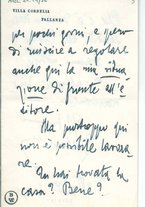 VILLA CORNELIA
PALLANZA
per pochi giorni, e spero
di riuscire a regolare
anche la mia situa
zione di fronte all'e
ditore.
Ma purtroppo qui
non è possibile lavora
re.
Tu hai trovata la
casa? Bene?